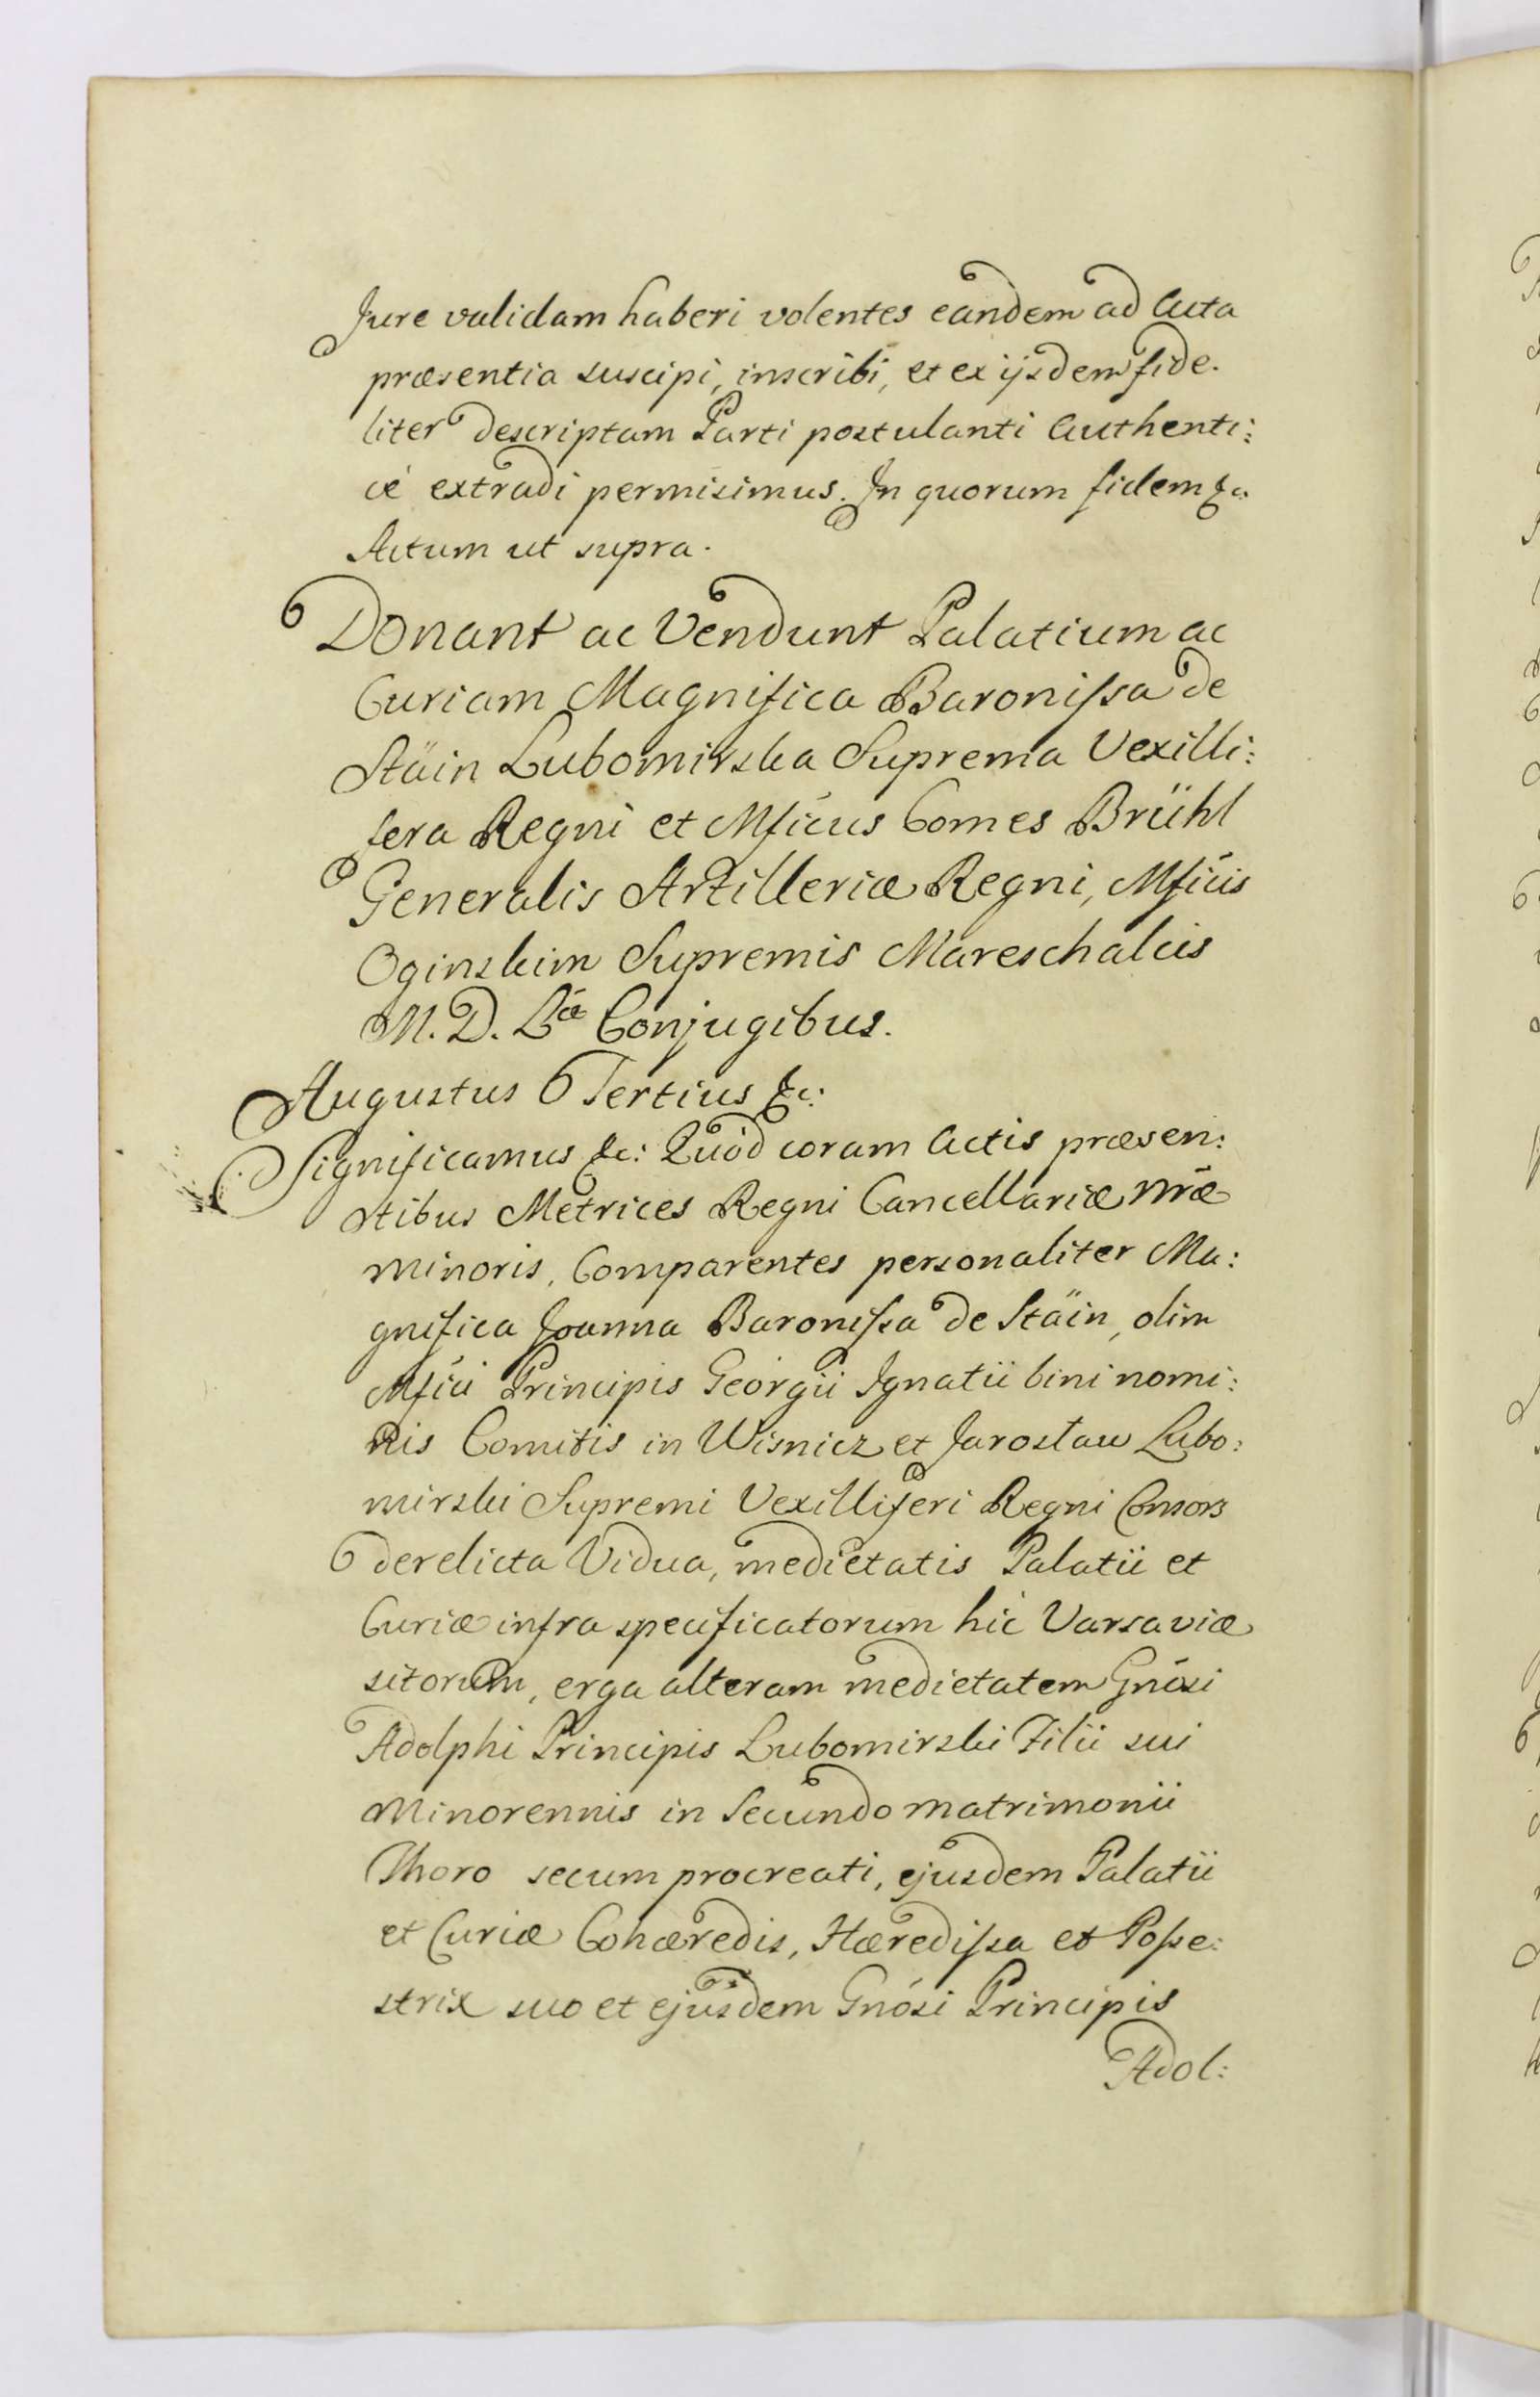 Jure validam haberi volentes eandem ad Acta
præsentia suscipi, inscribi, et ex ijsdem fide.
liter descriptam Parti postulanti Authenti:
cè extradi permisimus. In quorum fidem &c.
Actum ut supra.
Donant ac Vendunt Palatium ac
Curiam Magnifica Baronissa de
Stäin Lubomirska Suprema Vexilli:
fera Regni et Mficus Comes Brühl
Generalis Artilleriæ Regni, Mficis
Oginskim Supremis Mareschalcis
M. D. Læ Conjugibus.
Augustus Tertius &c:
Significamus &c: Quòd coram Actis præsen:
tibus Metrices Regni Cancellariæ nræ
minoris, Comparentes personaliter Ma:
gnifica Joanna Baronissa de Stäin, olim
Mfici Principis Georgii Ignatii bini nomi:
nis Comitis in Wisnicz et Jarosław Lubo:
mirski Supremi Vexilliferi Regni Consors
derelicta Vidua, medietatis Palatii et
Curiæ infra specificatorum hic Varsaviæ
sitorum, erga alteram medietatem Gnōsi
Adolphi Principis Lubomirski Filii sui
Minorennis in Secundo matrimonii
Thoro secum procreati, ejusdem Palatii
et Curiæ Cohæredis, Hæredissa et Posse:
strix suo et ejusdem Gnósi Principis
Adol: